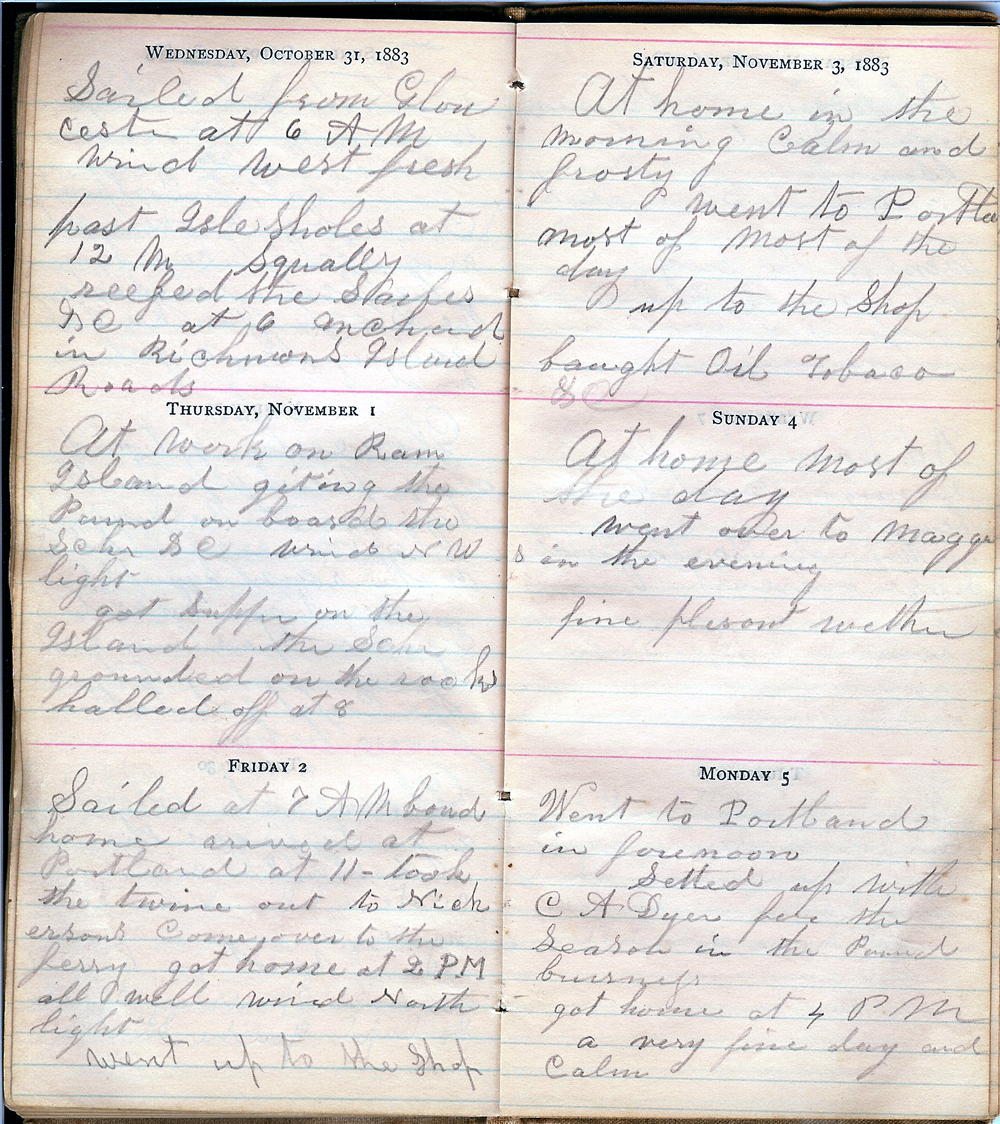 WEDNESDAY, OCTOBER 31, 1883
Sailed from Glou
cester at 6 AM
wind west fresh
past Isle Sholes at
12 M Squally
reefed the Sailes
&C at 6 anchard
in Richmons Island
Roads
THURSDAY, NOVEMBER 1
At work on Ram
Island giting the
Pound on board the
Schr &C wind N W
light
got Supper on the
Island the Schr
grounded on the rocks
halled off at 8
FRIDAY 2
Sailed at 7 AM bound
home arived at
Portland at 11 - took
the twine out to Nick
ersons Come over to the
ferry got home at 2 PM
all well wind North
light
went up to the Shop
SATURDAY, NOVEMBER 3, 1883
At home in the
morning Calm and
frosty
went to Portla
most of most of the
day
up to the Shop
baught Oil Tobaco
&C
SUNDAY 4
At home most of
the day
went over to Magge
s in the evening
fine plesont wether
MONDAY 5
Went to Portland
in forenoon
Setted up with
C A Dyer for the
Season in the Pound
got home at 4 P.M
a very fine day and
Calm